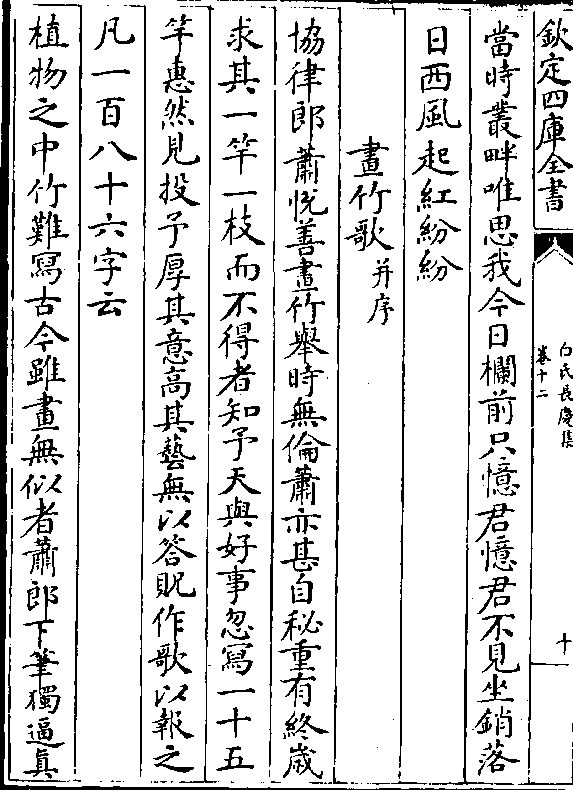 欽定四庫全書
白氏長慶集
卷十二
十
當時叢畔唯思我今日欄前只憶君憶君不見坐銷落
日西風起紅紛紛
畫竹歌并序
協律郎蕭悅善畫竹舉時無倫蕭亦甚自秘重有終歲
求其一竿一枝而不得者知予天與好事忽寫一十五
竿惠然見投予厚其意高其藝無以答貺作歌以報之
凡一百八十六字云
植物之中竹難寫古今雖畫無似者蕭郎下筆獨逼真